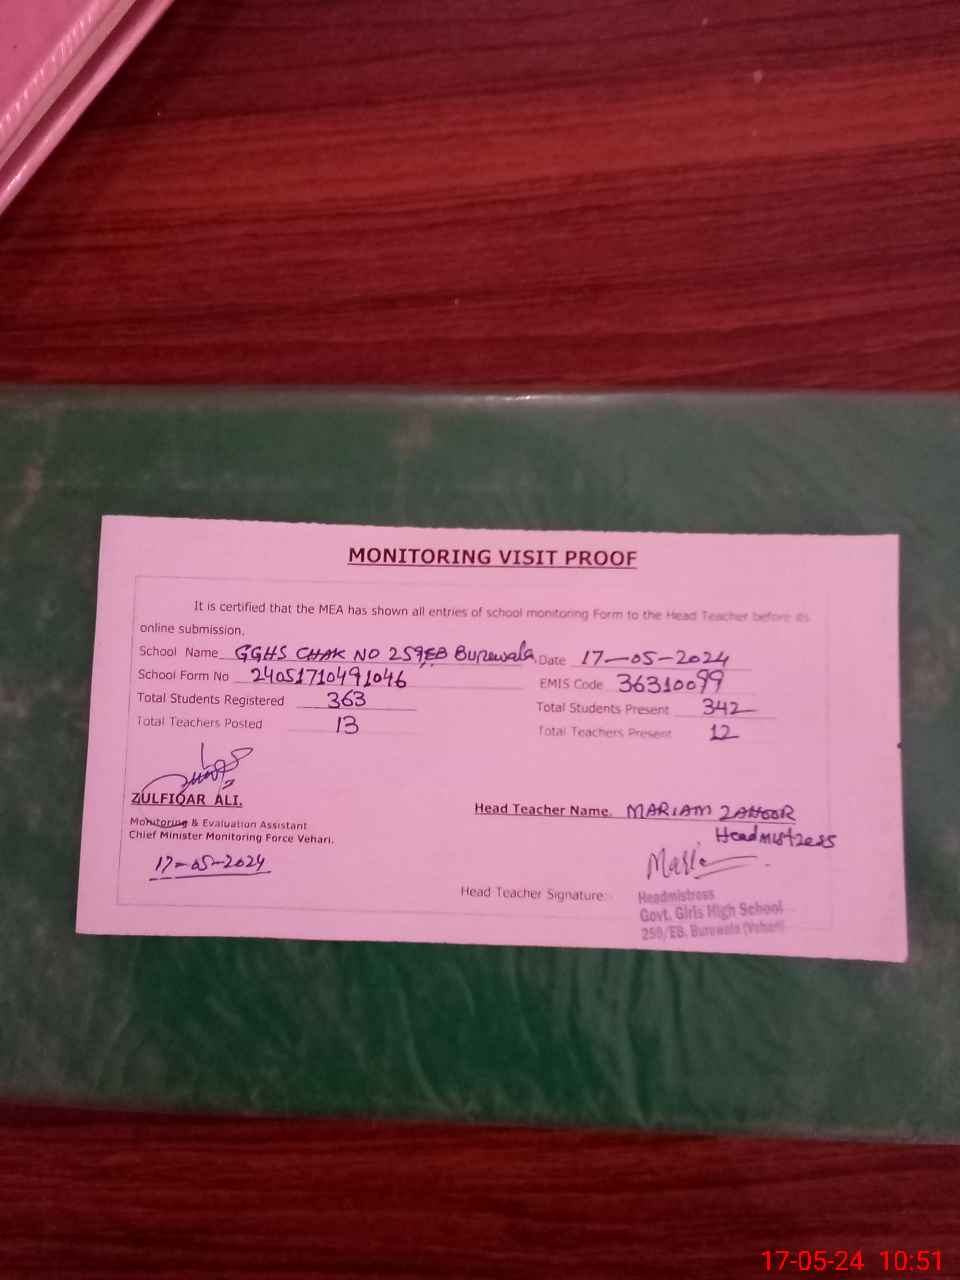 MONITORING VISIT PROOF
It is certified that the MEA has shown all entries of school monitoring Form to the Head Teacher before its
online submission.
School Name GGHS CHAK NO 259/EB Burewala Date 17-05-2024
School Form No 24051710491046 EMIS Code 36310099
Total Students Registered 363 Total Students Present 342
Total Teachers Posted 13 Total Teachers Present 12
ZULFIQAR ALI.
Monitoring & Evaluation Assistant
Chief Minister Monitoring Force Vehari.
17-05-2024
Head Teacher Name. MARIAM ZAHOOR
Headmistress
Head Teacher Signature:
Headmistress
Govt. Girls High School
259/EB. Burewala (Vehari)
17-05-24 10:51